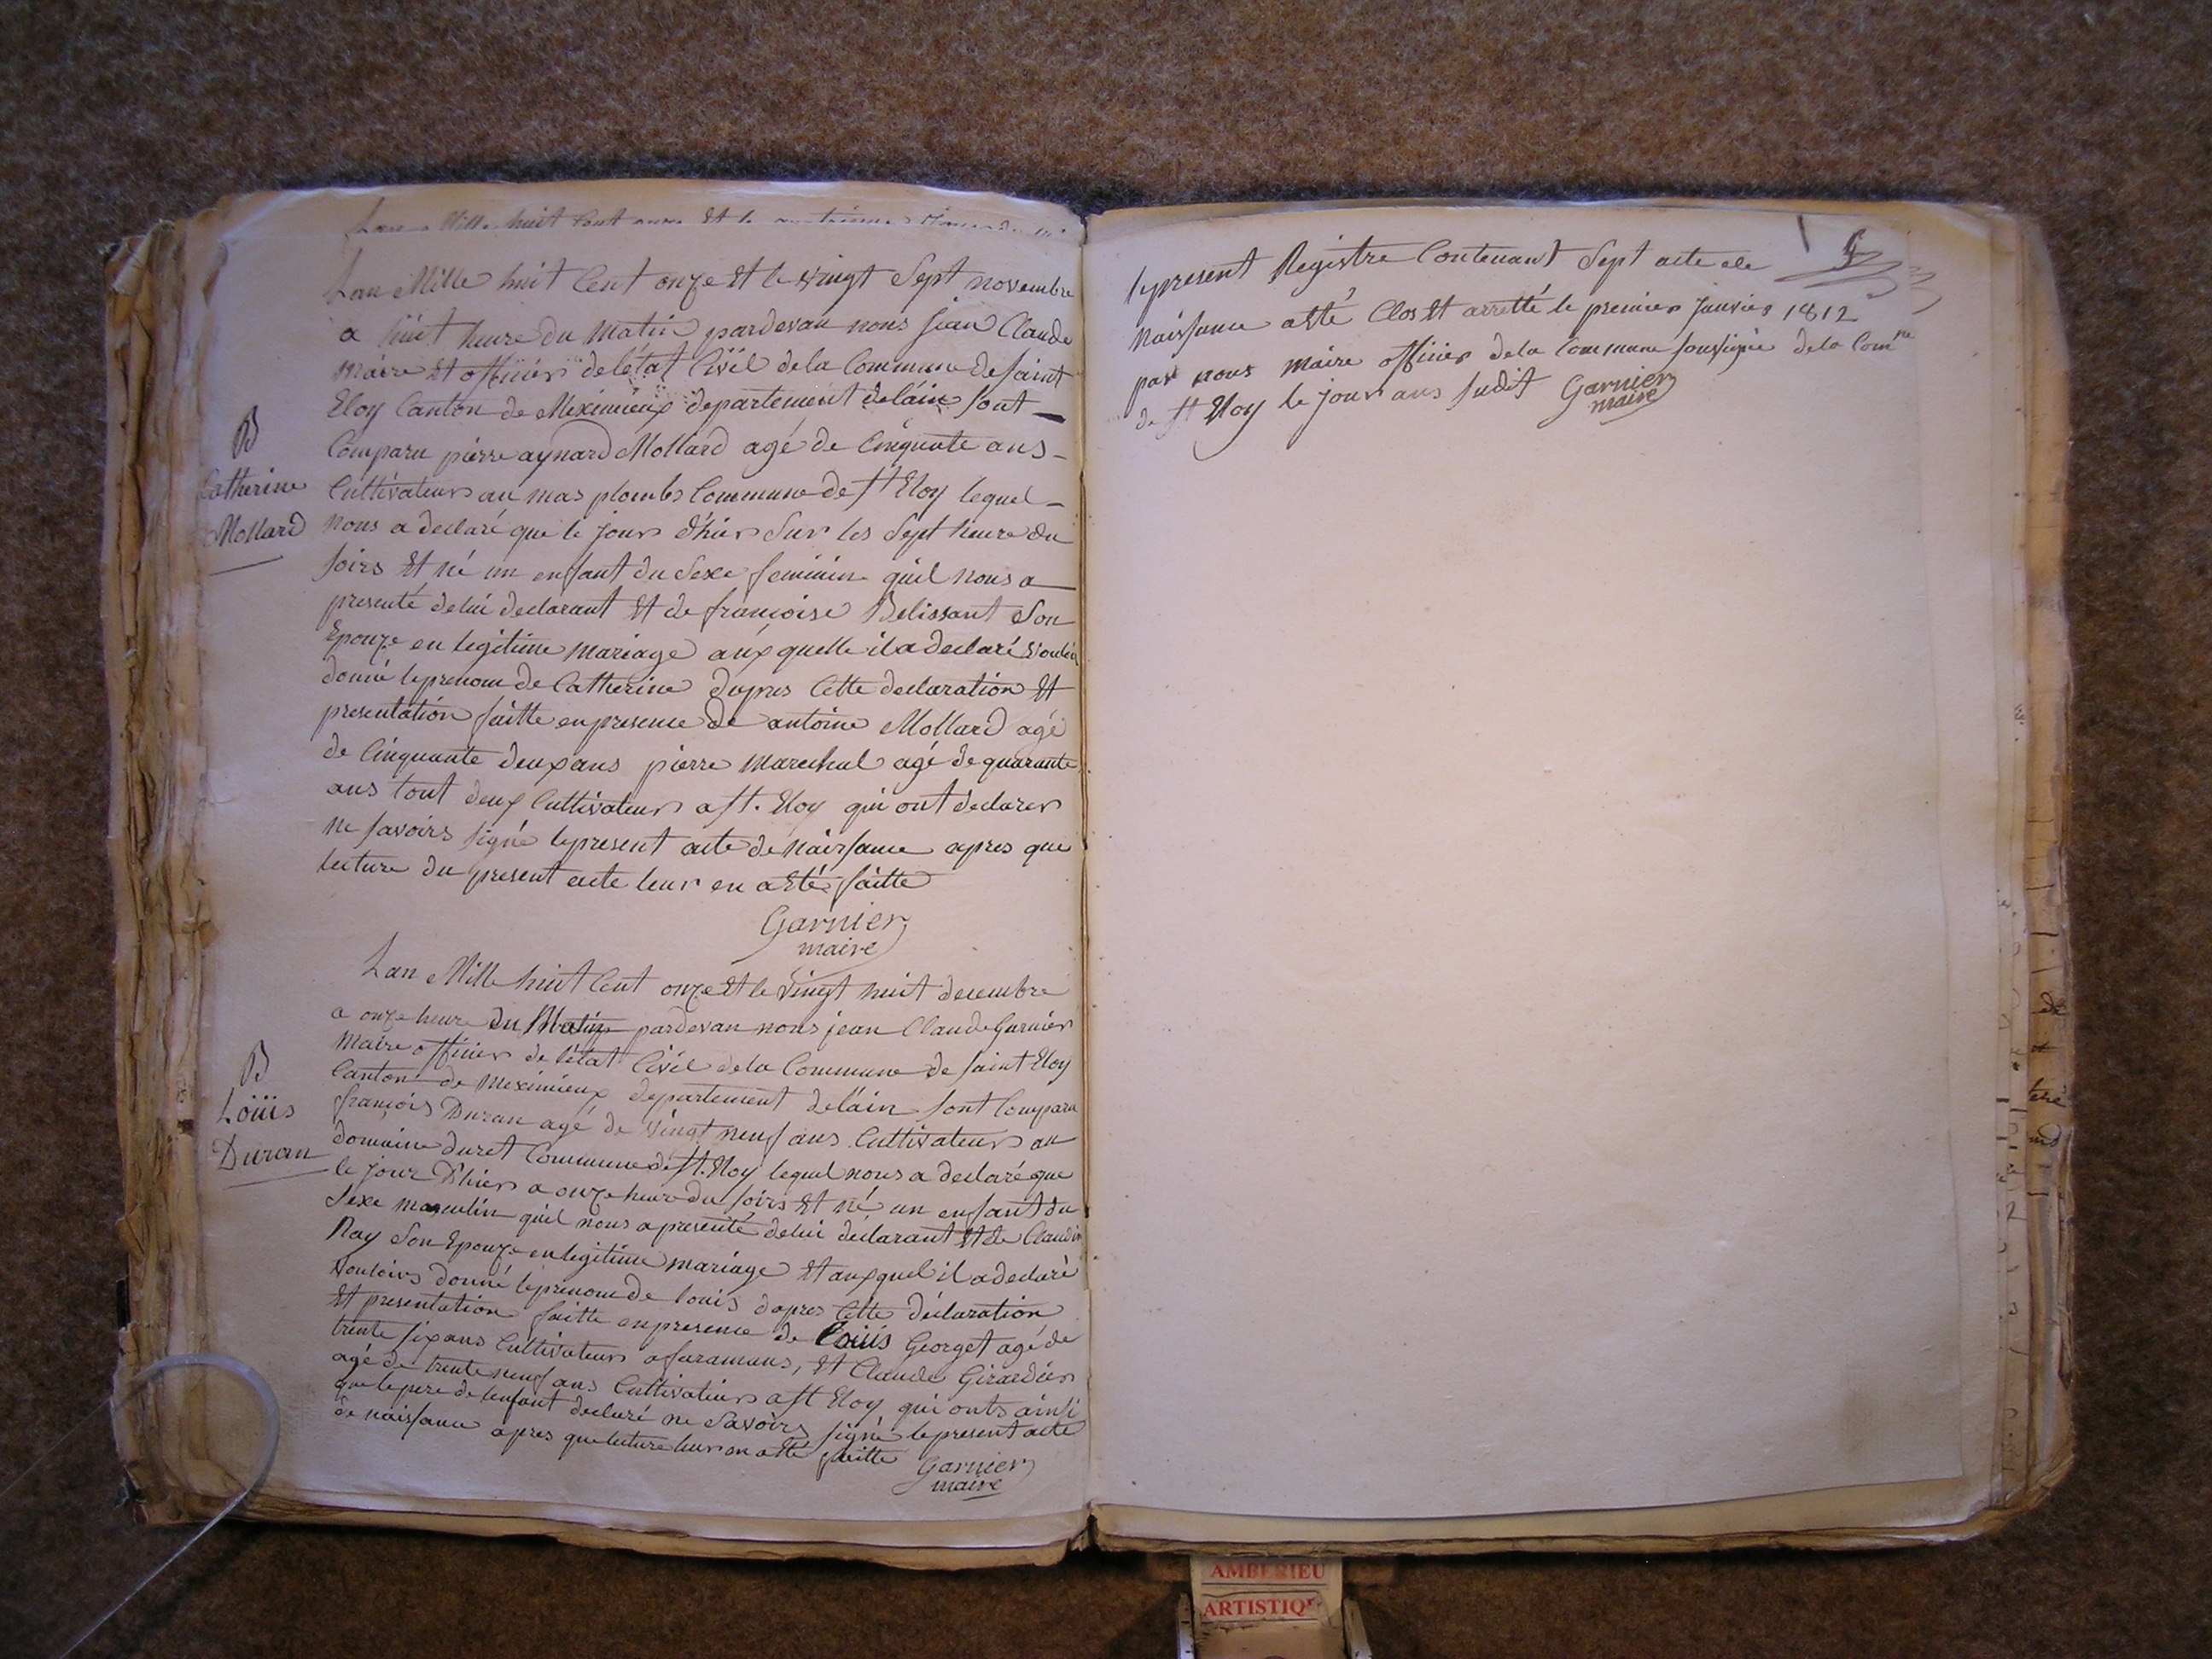 Lan Mille huit Cent onze Et le
Lan Mille huit Cent onze Et le vingt Sept novembre
a huit heure du matin pardevan nous jean Claude
maire Et officier de létat Civil de la Commune de saint
Eloy Canton de Meximieux departement de láin sont
Comparu pierre aynard Mollard agé de Cinquante ans
Cultivateur au mas plombs Commune de St Eloy lequel
nous a declaré que le jour d'hier Sur les Sept heure du
soirs Et né un enfant du Sexe feminin quil nous a
presenté de lui declarant Et de françoise Belissant Son
Epouze en legitime mariage aux quelle il a declaré vouloir
donné le prenom de Catherine dapres Cette declaration Et
presentation faitte en presence de antoine Mollard agé
de Cinquante deux ans pierre marechal agé de quarante
ans tout deux Cultivateur a St. Eloy qui ont declarer
ne savoirs signé le present acte de naissance apres que
lecture du present acte leur en a Eté faitte
Garnier
maire
B
Catherine
Mollard
Lan Mille huit Cent onze Et le vingt huit decembre
a onze heure du Matin pardevan nous jean Claude Garnier
maire officier de létat Civil de la Commune de saint Eloy
Canton de meximieux departement de láin sont Comparu
françois Duran agé de vingt neuf ans Cultivateur au
domaine duret Commune de St. Eloy lequel nous a declaré que
le jour D'hier a onze heure du soirs Et né un enfant du
Sexe masculin quil nous a presenté de lui declarant Et de Claudin
Nay Son Epouze en legitime mariage Et aux quel il a declaré
vouloirs donné le prenom de louis dapres Cette declaration
Et presentation faitte en presence de Loüis Georget agé de
trente six ans Cultivateur a faramans, Et Claude Girardier
agé de trente neuf ans Cultivateur a St Eloy qui onts ainsi
que le pere de lenfant declaré ne Savoirs signé le present acte
de naissance apres que lecture leur en a Eté faitte
Garnier
maire
B
Loüis
Duran
le present Registre Contenant Sept acte de
naissance a Eté Clos Et arretté le premier Janvier 1812
par nous maire officier de la Commune soussignée de la Comne
de St Eloy le jour ans sudit Garnier
maire
AMBERIEU
ARTISTIQ